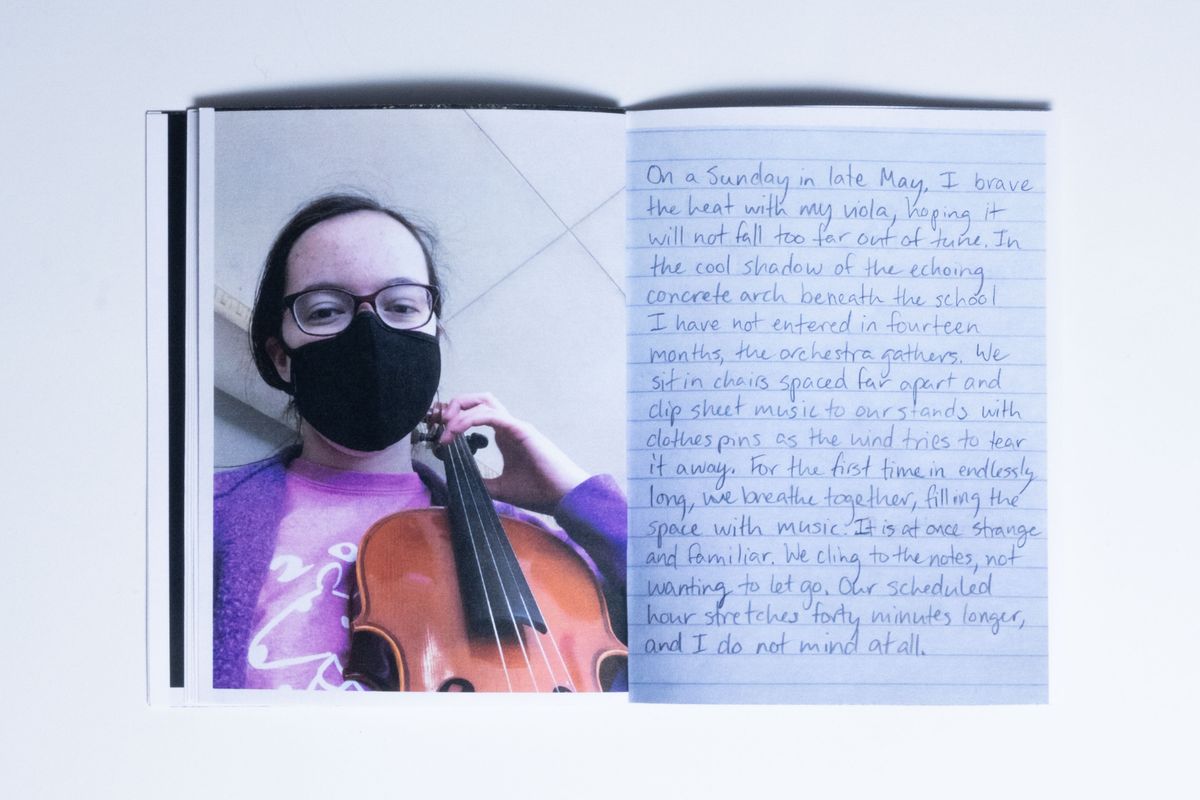 On a Sunday in late May, I brave
the heat with my viola, hoping it
will not fall too far out of tune. In
the cool shadow of the echoing
concrete arch beneath the school
I have not entered in fourteen
months, the orchestra gathers. We
sit in chairs spaced far apart and
clip sheet music to our stands with
clothespins as the wind tries to tear
it away. For the first time in endlessly
long, we breathe together, filling the
space with music. It is at once strange
and familiar. We cling to the notes, not
wanting to let go. Our scheduled
hour stretches forty minutes longer,
and I do not mind at all.